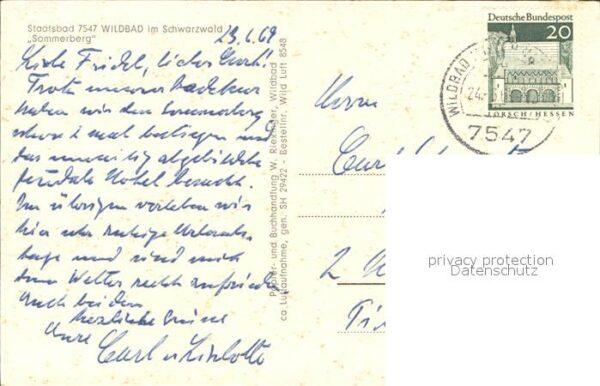 Staatsbad 7547 WILDBAD im Schwarzwald
„Sommerberg"
23.6.69
Liebe Friedel, lieber Curt!
Trotz unserer Badekur
haben wir den Sommerberg
schon 2 mal bestiegen und
das umseitig abgebildete
feudale Hotel besucht.
Im übrigen verleben wir
hier sehr ruhige Urlaubs-
tage und sind mit
dem Wetter recht zufrieden
Euch beiden
herzliche Grüsse
Eure
Curl u Liselotte
Papier- und Buchhandlung W. Riexinger, Wildbad
ca Luftaufnahme, gen. SH 29422 - Bestellnr. Wild Luft 8548
Deutsche Bundespost
20
LORSCH/HESSEN
WILDBAD
24.
7547
Herrn
2
privacy protection
Datenschutz